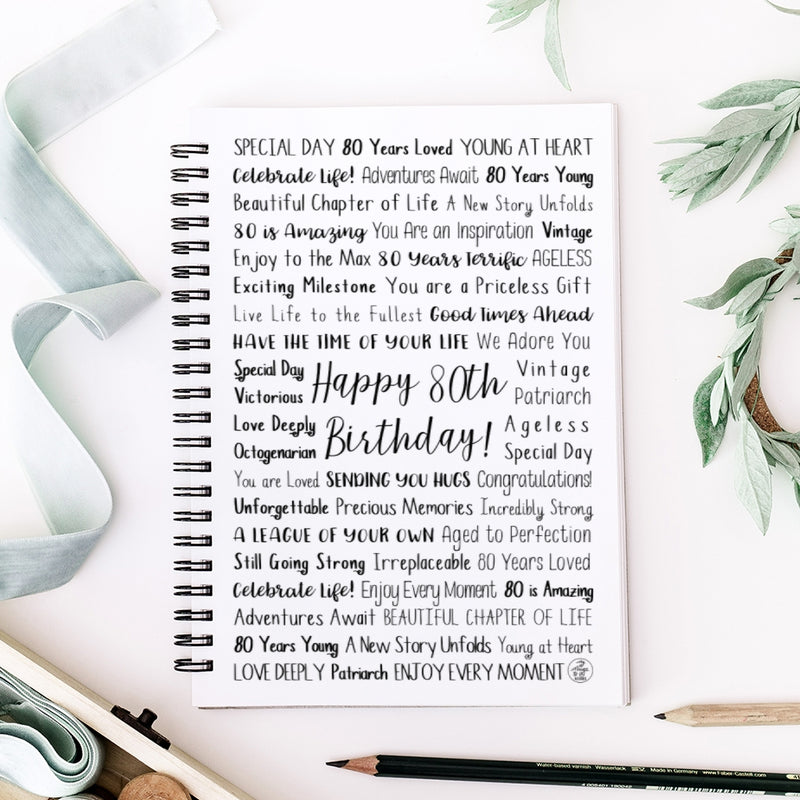 SPECIAL DAY 80 Years Loved YOUNG AT HEART
Celebrate Life! Adventures Await 80 Years Young
Beautiful Chapter of Life A New Story Unfolds
80 is Amazing You Are an Inspiration Vintage
Enjoy to the Max 80 Years Terrific AGELESS
Exciting Milestone You are a Priceless Gift
Live Life to the Fullest Good Times Ahead
HAVE THE TIME OF YOUR LIFE We Adore You
Special Day
Victorious
Love Deeply
Octogenarian
Happy 80th
Birthday!
Vintage
Patriarch
Ageless
Special Day
You are Loved SENDING YOU HUGS Congratulations!
Unforgettable Precious Memories Incredibly Strong
A LEAGUE OF YOUR OWN Aged to Perfection
Still Going Strong Irreplaceable 80 Years Loved
Celebrate Life! Enjoy Every Moment 80 is Amazing
Adventures Await BEAUTIFUL CHAPTER OF LIFE
80 Years Young A New Story Unfolds Young at Heart
LOVE DEEPLY Patriarch ENJOY EVERY MOMENT
Water-based varnish Wasserlack Made in Germany www.Faber-Castell.com